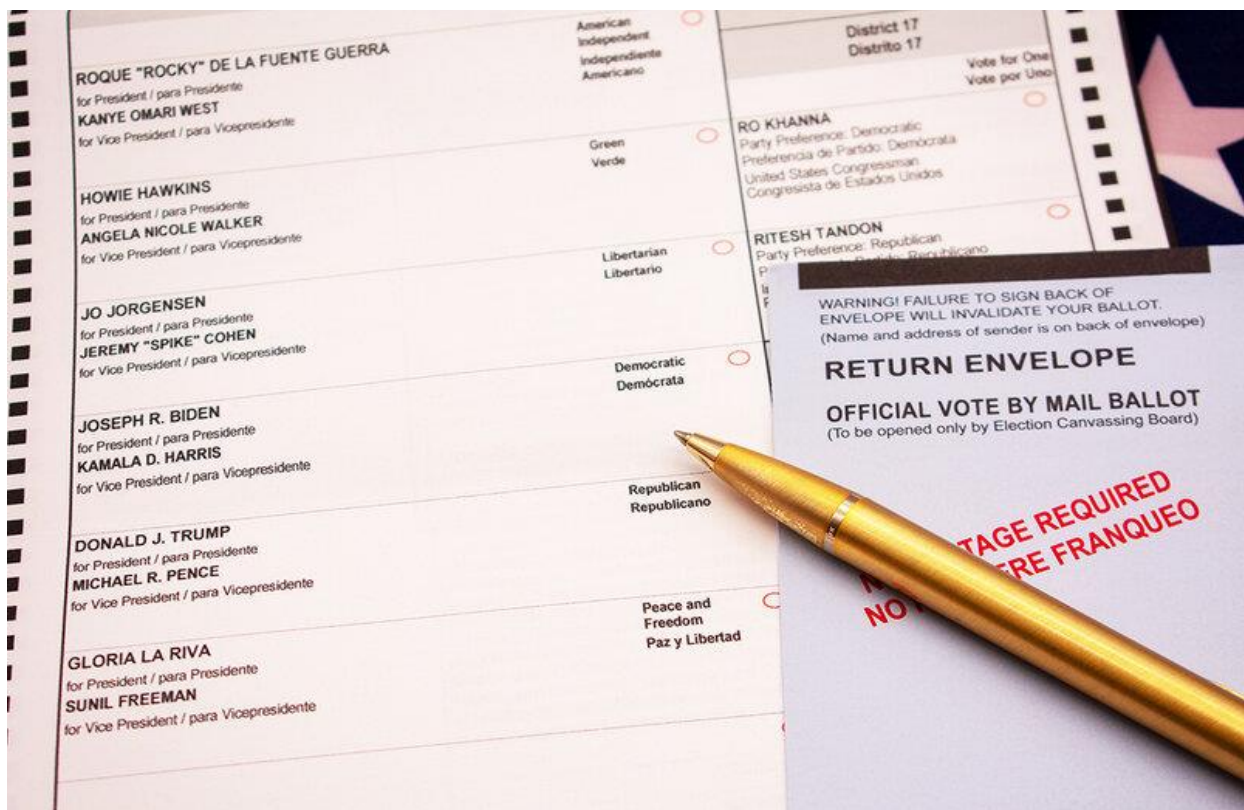 ROQUE "ROCKY" DE LA FUENTE GUERRA
for President / para Presidente
KANYE OMARI WEST
for Vice President / para Vicepresidente
American
Independent
Independiente
Americano
HOWIE HAWKINS
for President / para Presidente
ANGELA NICOLE WALKER
for Vice President / para Vicepresidente
Green
Verde
JO JORGENSEN
for President / para Presidente
JEREMY "SPIKE" COHEN
for Vice President / para Vicepresidente
Libertarian
Libertario
JOSEPH R. BIDEN
for President / para Presidente
KAMALA D. HARRIS
for Vice President / para Vicepresidente
Democratic
Demócrata
DONALD J. TRUMP
for President / para Presidente
MICHAEL R. PENCE
for Vice President / para Vicepresidente
Republican
Republicano
GLORIA LA RIVA
for President / para Presidente
SUNIL FREEMAN
for Vice President / para Vicepresidente
Peace and
Freedom
Paz y Libertad
District 17
Distrito 17
Vote for One
Vote por Uno
RO KHANNA
Party Preference: Democratic
Preferencia de Partido: Demócrata
United States Congressman
Congresista de Estados Unidos
RITESH TANDON
Party Preference: Republican
Republicano
WARNING! FAILURE TO SIGN BACK OF
ENVELOPE WILL INVALIDATE YOUR BALLOT.
(Name and address of sender is on back of envelope)
RETURN ENVELOPE
OFFICIAL VOTE BY MAIL BALLOT
(To be opened only by Election Canvassing Board)
REQUIRED
FRANQUEO